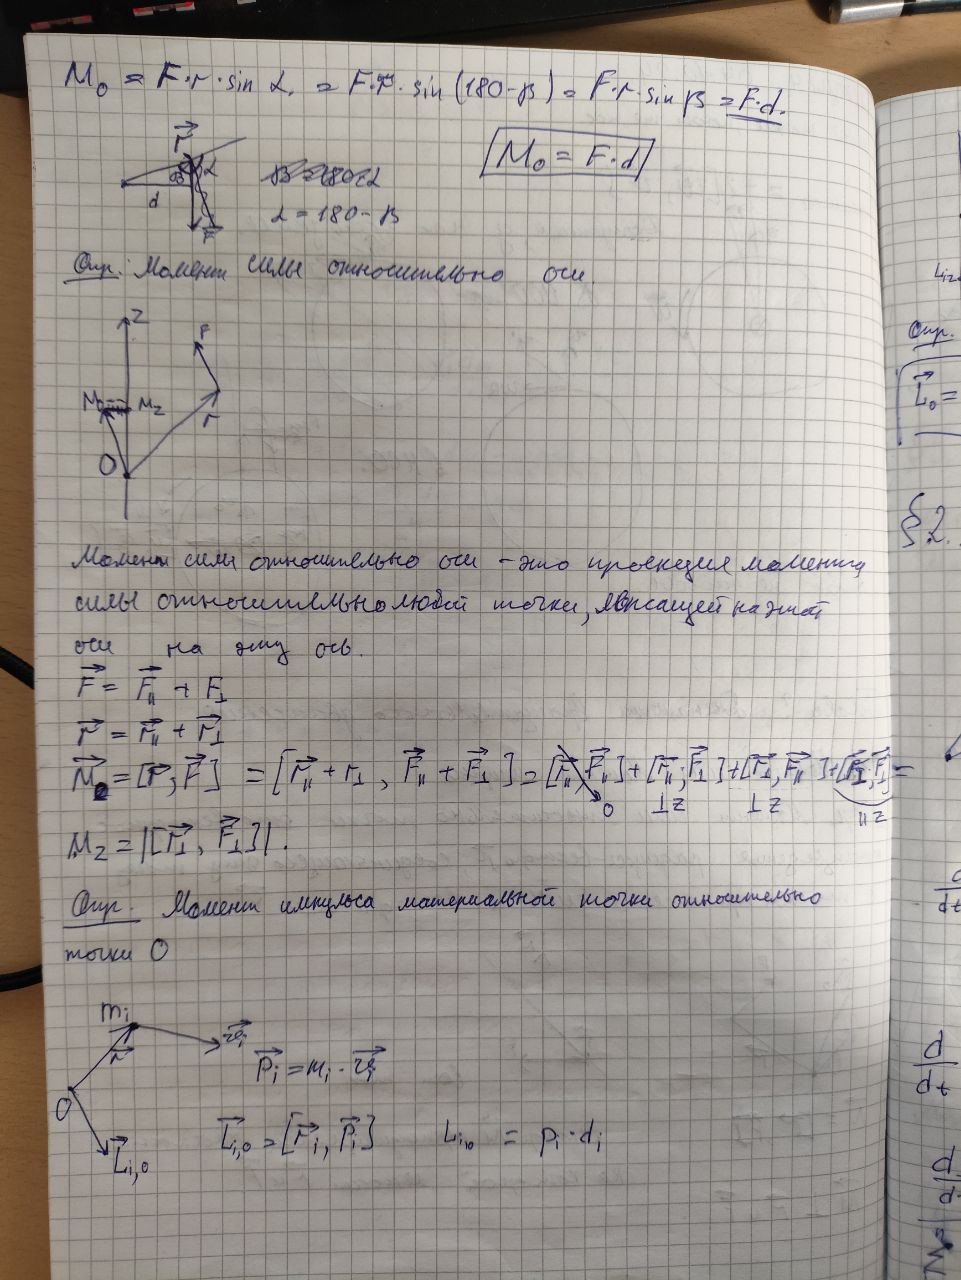 M₀ = F·r·sin α = F·r·sin (180-β) = F·r·sin β = F·d.
r⃗
β
α
d
F⃗
M₀ = F·d
α = 180 - β
Опр. Момент силы относительно оси.
Z
F
M₀
M_Z
r
O
Момент силы относительно оси - это проекция момента
силы относительно любой точки, лежащей на этой
оси на эту ось.
F⃗ = F⃗_∥ + F_⊥
r⃗ = r⃗_∥ + r⃗_⊥
M⃗₀ = [r⃗, F⃗] = [r⃗_∥ + r_⊥, F⃗_∥ + F⃗_⊥] = [r⃗_∥, F⃗_∥] + [r⃗_∥, F⃗_⊥] + [r⃗_⊥, F⃗_∥] + [r⃗_⊥, F⃗_⊥] =
0 ⊥Z ⊥Z ∥Z
M_Z = |[r⃗_⊥, F⃗_⊥]|.
Опр. Момент импульса материальной точки относительно
точки O
m_i
r⃗
v⃗_i
p⃗_i = m_i · v⃗_i
O
L⃗_i,0
L⃗_i,0 = [r⃗_i, p⃗_i] L_i,0 = p_i · d_i
Опр.
L⃗₀ =
§2.
d
dt
d
dt